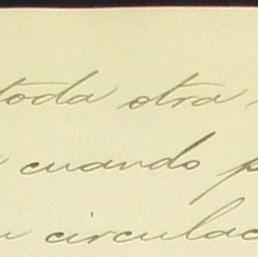 toda otra
cuando p
circulac